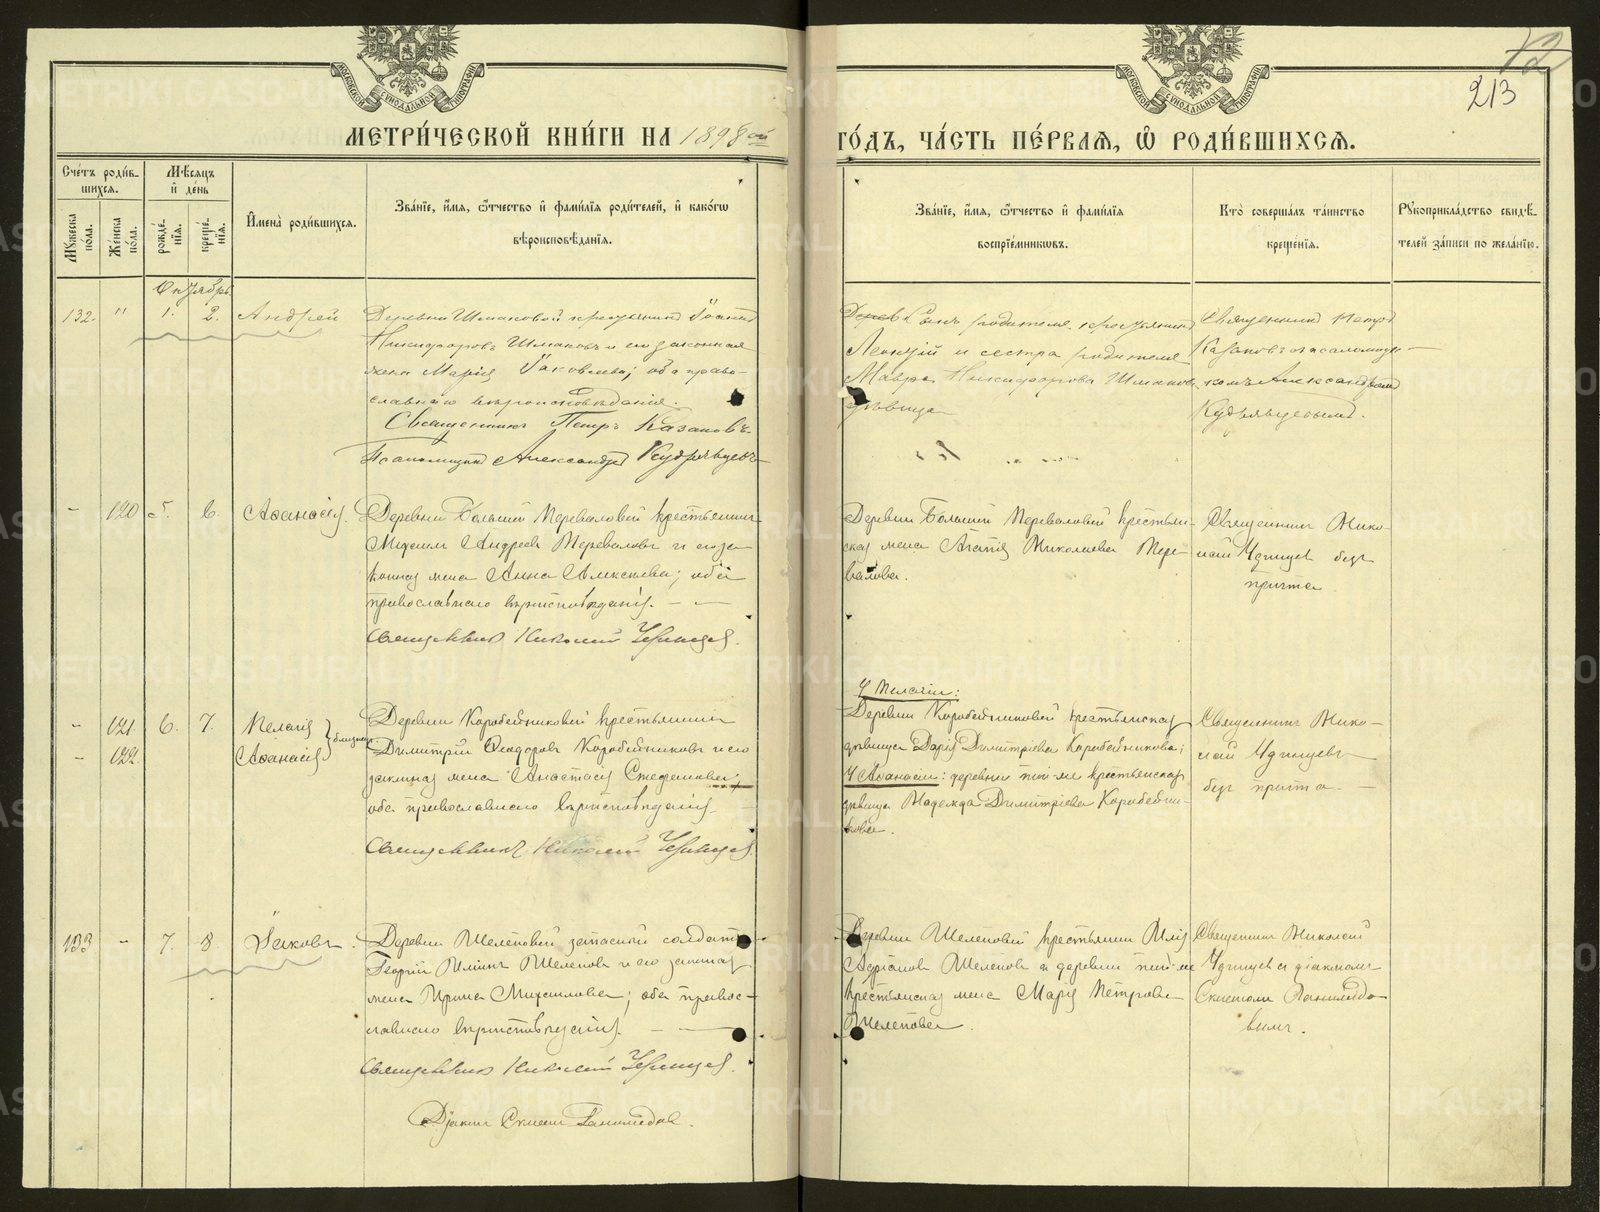 МОСКОВСКОЙ СѴНОДАЛЬНОЙ ТИПОГРАФІИ
МОСКОВСКОЙ СѴНОДАЛЬНОЙ ТИПОГРАФІИ
12
213
МЕТРИ́ЧЕСКОЙ КНИ́ГИ НА 1898ой
ГО́ДЪ, ЧА́СТЬ ПЕ́РВАѦ, Ѡ҆ РОДИ́ВШИХСѦ.
Сче́тъ роди́в-
шихсѧ.
Мѣ́сѧцъ
и҆ де́нь
Мꙋ́жеска
по́ла.
Же́нска
по́ла.
рожде́-
нїѧ.
креще́-
нїѧ.
И҆мена̀ роди́вшихсѧ.
Зва́нїе, и҆́мѧ, ѻ҆́тчество и҆ фами́лїѧ роди́телей, и҆ како́гѡ
вѣроисповѣ́данїѧ.
Зва́нїе, и҆́мѧ, ѻ҆́тчество и҆ фами́лїѧ
воспрїе́мникѡвъ.
Кто̀ соверша́лъ та́инство
креще́нїѧ.
Рꙋкоприкла́дство свидѣ́-
телей за́писи по жела́нїю.
Октябрь.
132. " 1. 2. Андрей
Деревни Шмаковой крестьянинъ Іоаннъ
Никифоровъ Шмаковъ и его законная
жена Марія Іаковлева; оба право-
славнаго вѣроисповѣданія.
Священникъ Петръ Казаковъ.
Псаломщикъ Александръ Кудрявцевъ
Сынъ родителя крестьянинъ
Леонтій и сестра родителя
Мавра Никифорова Шмакова
дѣвица
Священникъ Петръ
Казаковъ съ псаломщи-
комъ Александромъ
Кудрявцевымъ.
- 120 5. 6. Аѳанасія.
Деревни Большой Переваловой крестьянинъ
Максимъ Андреевъ Переваловъ и его за-
конная жена Анна Алексѣева; оба
православнаго вѣроисповѣданія. — —
Священникъ Николай Удинцевъ.
Деревни Большой Переваловой крестьян-
ская жена Агапія Николаева Пере-
валова.
Священникъ Нико-
лай Удинцевъ безъ
причта
- 121. 6. 7. Пелагія
- 122. Аѳанасія } близнецы
Деревни Коробейниковой крестьянинъ
Димитрій Ѳеодоровъ Коробейниковъ и его
законная жена Анастасія Стефанова;
оба православнаго вѣроисповѣданія —
Священникъ Николай Удинцевъ.
У Пелагіи:
Деревни Коробейниковой крестьянская
дѣвица Дарія Димитріева Коробейникова;
У Аѳанасіи: деревни той-же крестьянская
дѣвица Надежда Димитріева Коробейни-
кова.
Священникъ Нико-
лай Удинцевъ
безъ причта. —
133 - 7. 8. Іаковъ.
Деревни Шелеповой запасный солдатъ
Георгій Иліинъ Шелеповъ и его законная
жена Ирина Михаилова; оба право-
славнаго вѣроисповѣданія. — —
Священникъ Николай Удинцевъ.
Діаконъ
Деревни Шелеповой крестьянинъ Илія
Адріановъ Шелеповъ и деревни той-же
крестьянская жена Марія Петрова
Шелепова.
Священникъ Николай
Удинцевъ съ діакономъ
вымъ.
METRIKI.GASO-URAL.RU